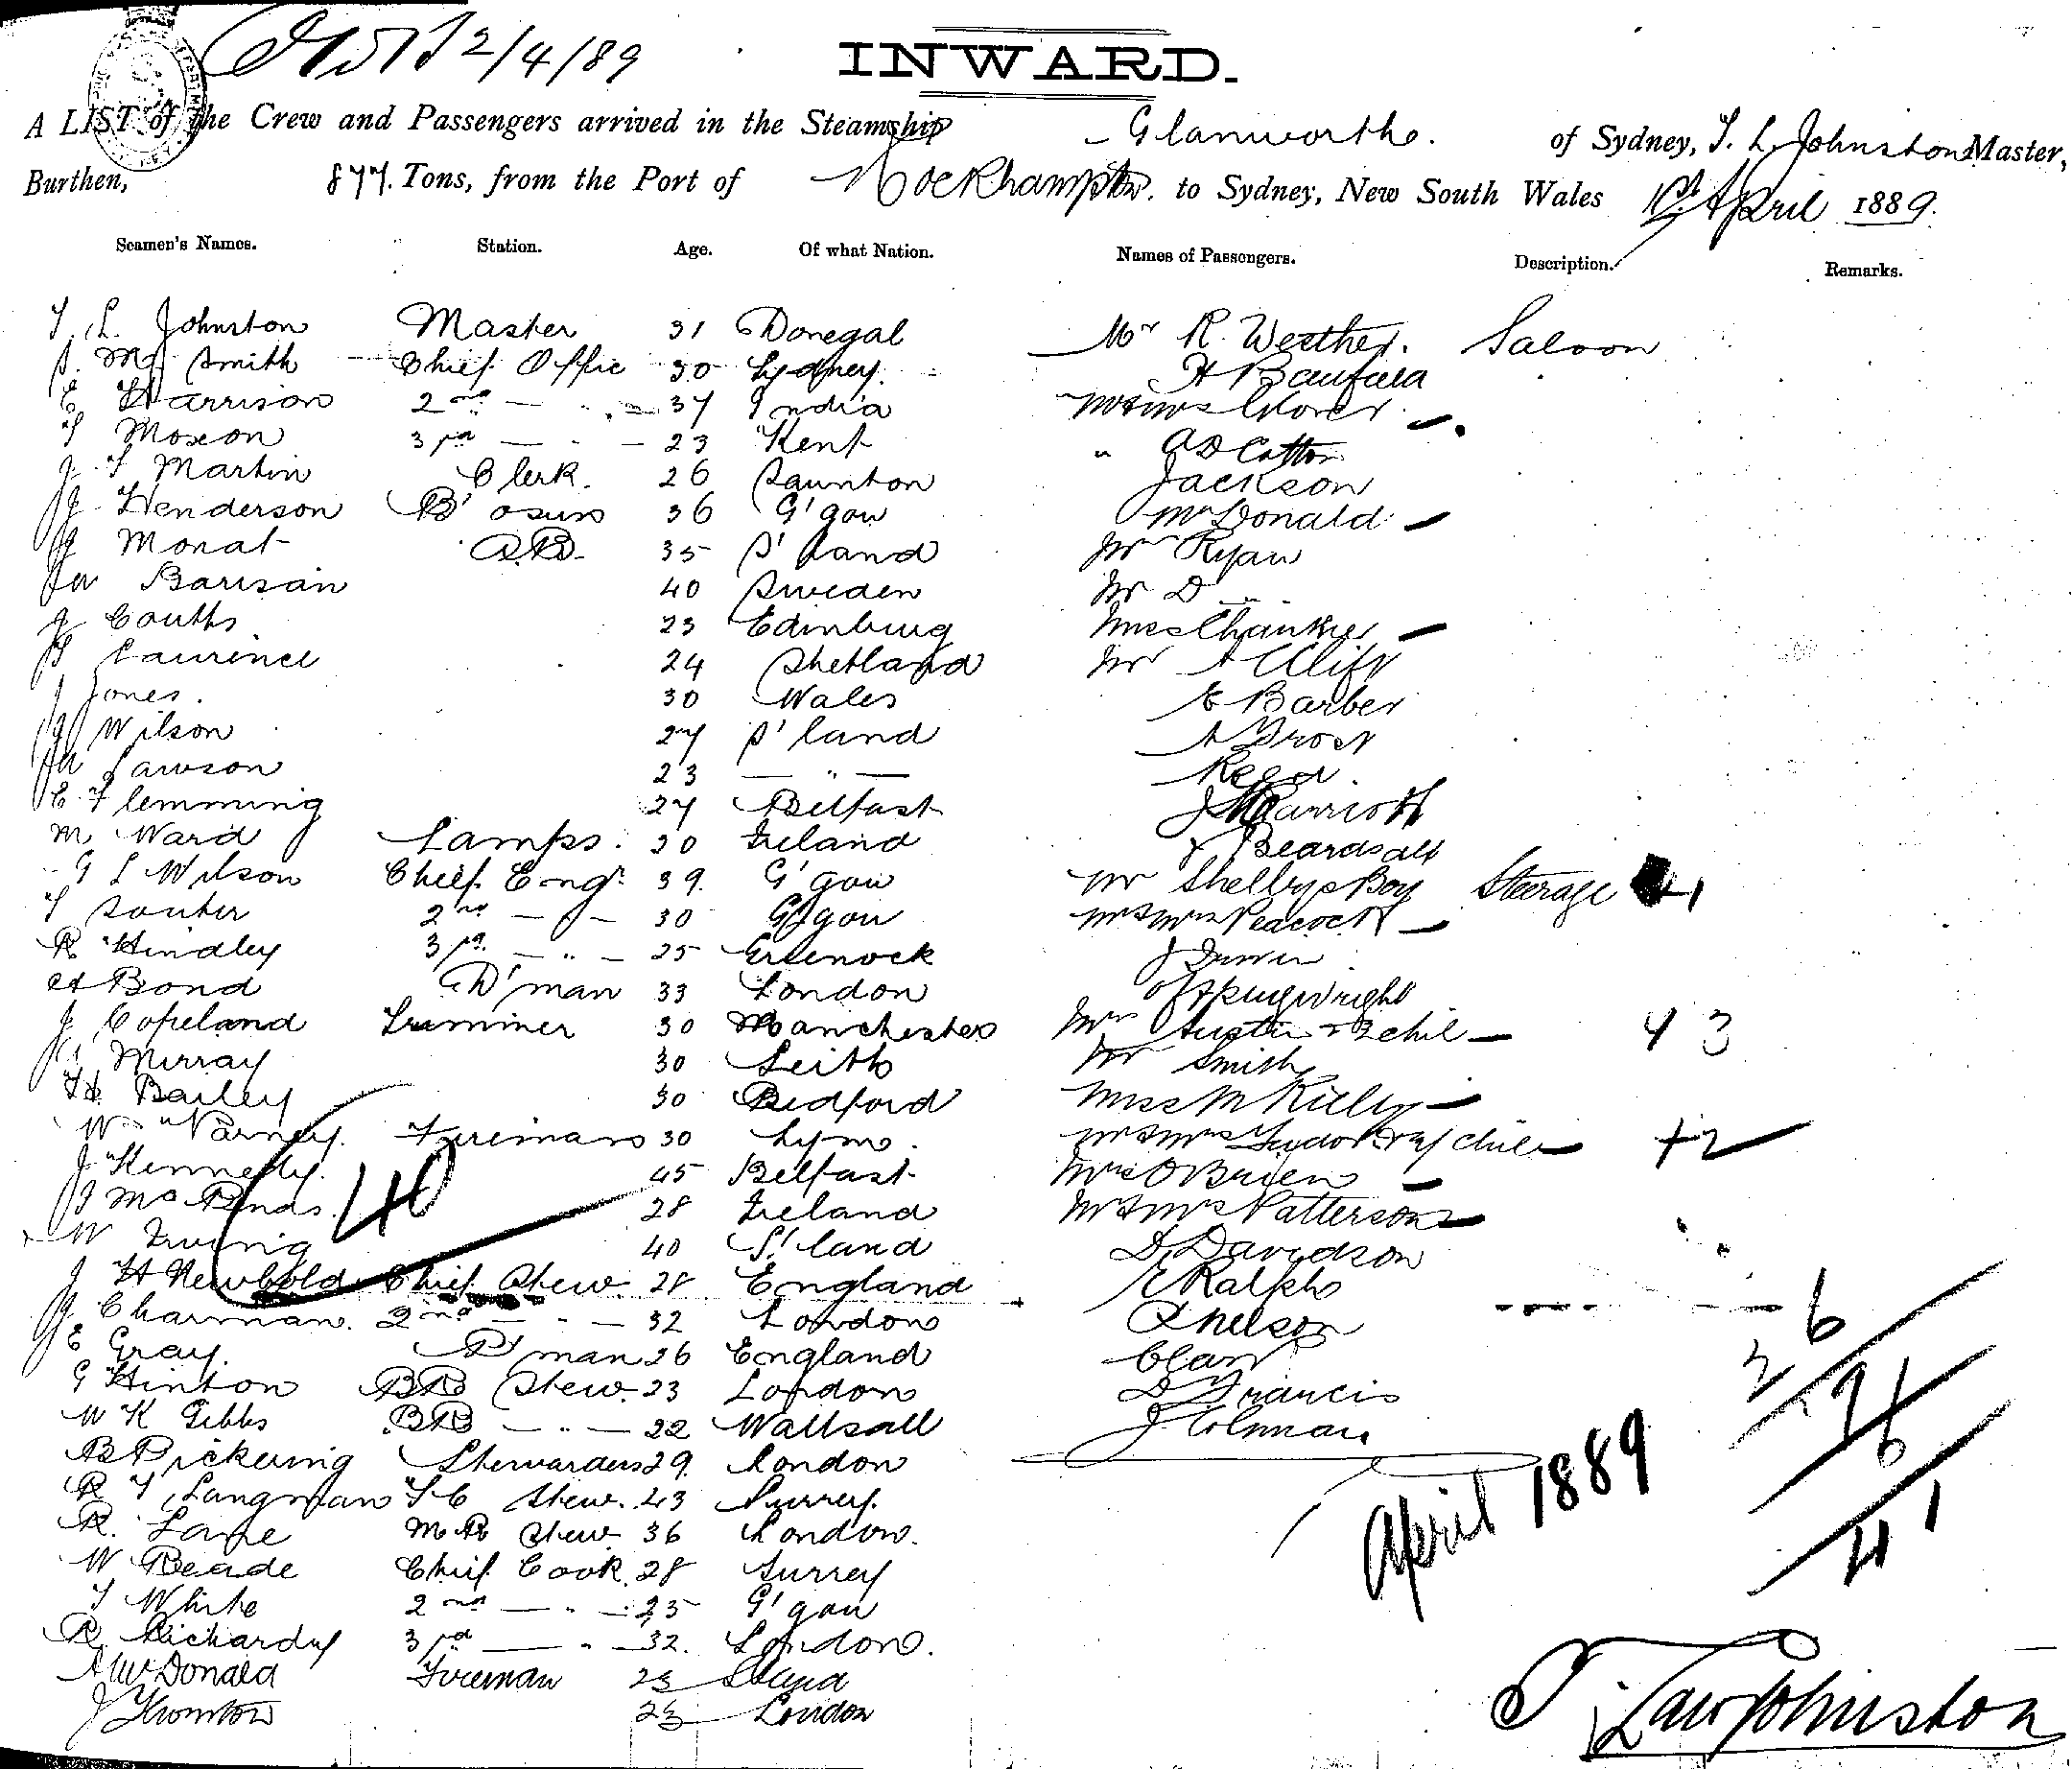 2/4/89
INWARD.
A LIST of the Crew and Passengers arrived in the Steamship Glanworth. of Sydney, T. L. Johnston Master,
Burthen, 877. Tons, from the Port of Rockhampton. to Sydney, New South Wales 1st April 1889.
Seamen's Names. Station. Age. Of what Nation. Names of Passengers. Description. Remarks.
T. L. Johnston Master 31 Donegal Mr R. Weather. Saloon
Smith Chief Offic 30 Sydney. H Banfield
E Harrison 2nd — " — 37 India Mr & Mrs Glover —
T Moxon 3rd — " — 23 Kent " A D Cotton
J T Martin Clerk. 26 Taunton Jackson
J Henderson B'osun 36 G'gow McDonald —
J Monat A.B. 35 S'land Mr Ryan
40 Sweden Mr D — " —
J Coutts 23 Edinburg Miss —
J Laurence 24 Shetland Mr A Cliff
J Jones. 30 Wales E Barber
J Wilson 27 S'land A Frost
W Lawson 23 — " — Reed.
C Flemming 27 Belfast J Marriott
M Ward Lamps. 30 Ireland Beardsall
G L Wilson Chief Engr. 39. G'gow Mr Shelby & Boy Steerage 1
T Souter 2nd — " — 30 G'gow Mr & Mrs Peacock —
R Hindley 3rd. — " — 25 Greenock J
A Bond D'man 33 London
J Copeland Trimmer 30 Manchester Mrs Austin & 3 chil — 4 3
J Murray 30 Leith Mr Smith
H. Bailey 30 Bedford Miss M Kielly —
W Varney. Firemans 30 Lym. Mr & Mrs chil — + 2
J Kennedy. 45 Belfast Mrs O'Brien —
40
28 Ireland Mr & Mrs Pattersons —
W Irving 40 S'land D. Davidson
J H Newbold Chief Stew. 28 England E Ralphs
J Charman. 2nd — " — 32 London Nelson
E Gray. P'man 26 England
G Hinton BR Stew. 23 London D Francis
W K Gibbs BR — " — 22 Wallsall J Colman
B Pickering Stewardess 29. London
R T Langman F C Stew. 43 Surrey.
R. Lane M.R. Stew. 36 London.
W Reade Chief Cook. 28 Surrey
T White 2nd — " — 25 G'gow
R. Richards 3rd — " — 32. London.
A McDonald Foreman 23
J 23 London
6
April 1889
41
T. Law Johnston